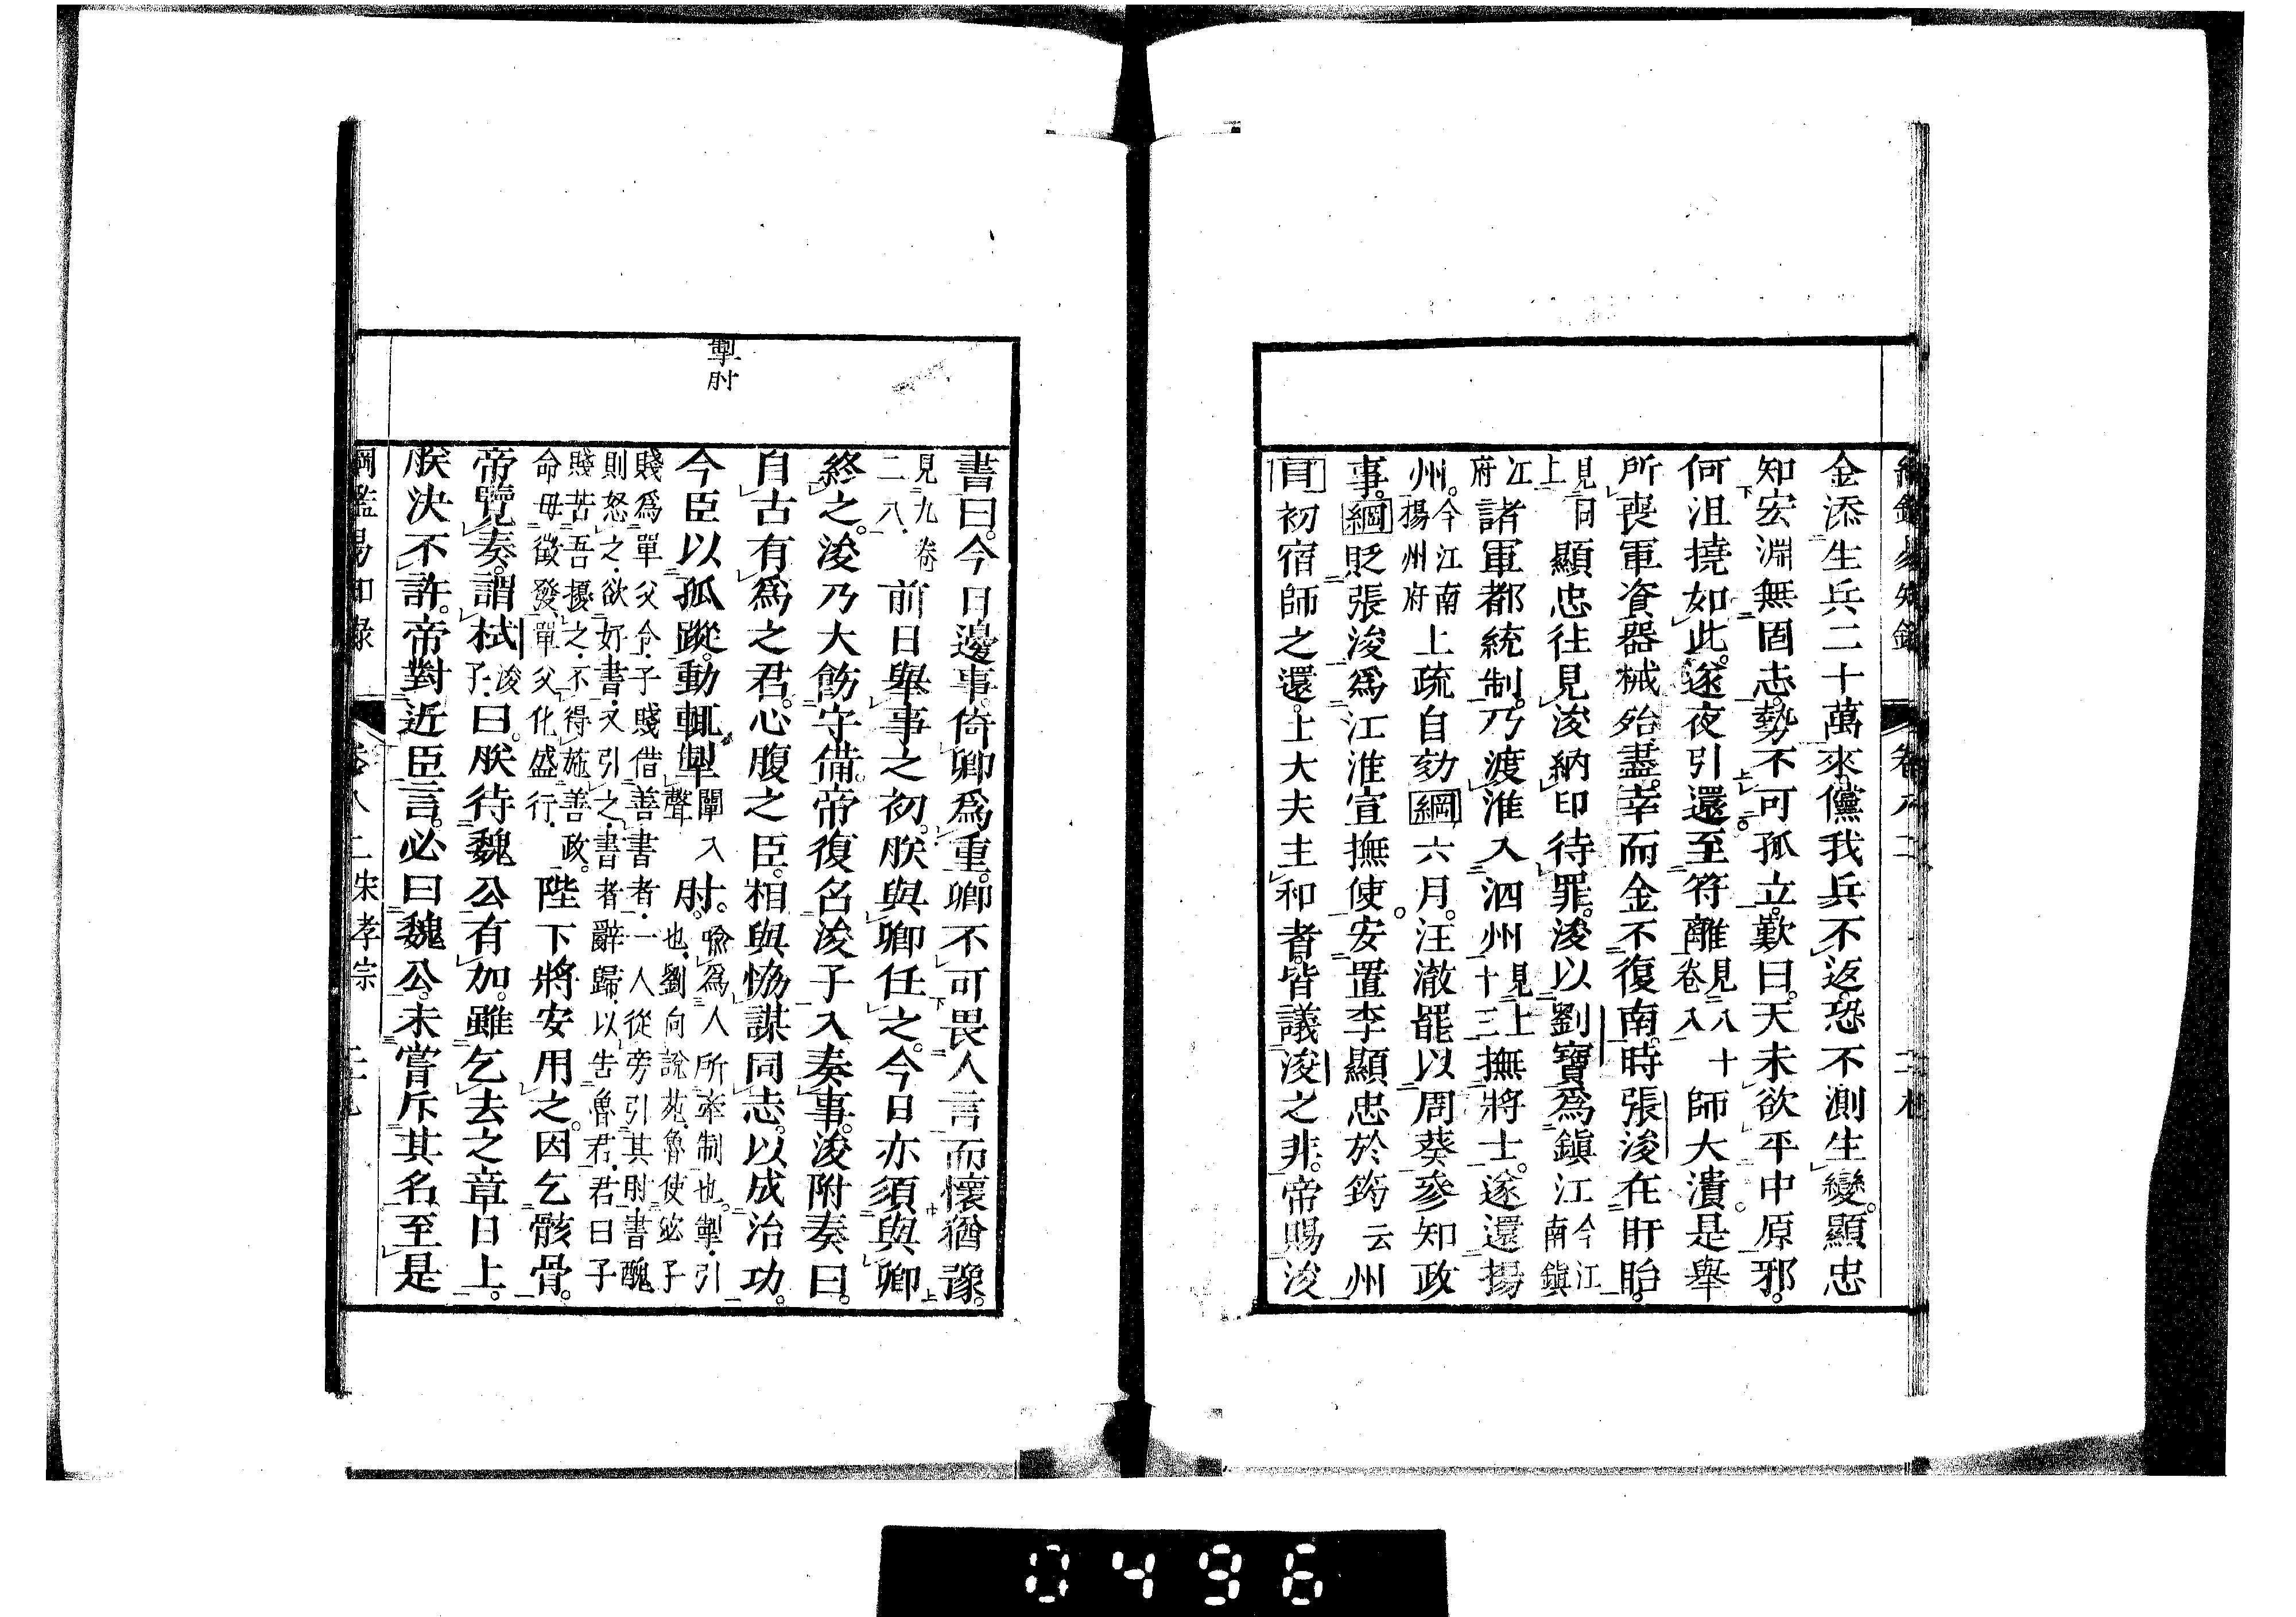 綱鑑易知錄 卷八二
金添生兵二十萬來儻我兵不返恐不測生變。顯忠
知宏淵無固志。勢不可孤立。歎曰。天未欲平中原邪。
何沮撓如此。遂夜引還。至符離見八十卷入師大潰。是舉
所喪軍資器械殆盡。幸而金不復南。時張浚在盱眙。
見同上顯忠往見浚納印待罪。浚以劉寶爲鎭江今江南鎭
江府諸軍都統制。乃渡淮入泗州見上十三撫將士。遂還揚
州。今江南揚州府上疏自劾綱六月。汪澈罷以周葵參知政
事。綱貶張浚爲江淮宣撫使。安置李顯忠於筠云州
目初宿師之還。上大夫主和者。皆議浚之非。帝賜浚
書曰。今日邊事。倚卿爲重。卿不可畏人言而懷猶豫。
見九卷二八.前日舉事之初。朕與卿任之。今日亦須與卿
終之。浚乃大飭守備。帝復名浚子入奏事。浚附奏曰。
自古有爲之君。心腹之臣。相與恊謀同志。以成治功。
今臣以孤蹤。動輒掣闡入聲肘。喩爲人所牽制也。掣.引也.劉向說苑.魯使宓子
賤爲單父令.子賤借善書者.一人從旁引其肘.書醜
則怒之.欲好書.又引之.書者辭歸.以告魯君.君曰子
賤苦吾擾之.不得施善政。
命毋徵發單父.化盛行.陛下將安用之。因乞骸骨。
帝覽奏。謂栻浚子.曰。朕待魏公有加。雖乞去之章日上。
朕決不許。帝對近臣言。必曰魏公。未嘗斥其名。至是
掣肘
綱鑑易知錄 卷八二 宋孝宗
0496